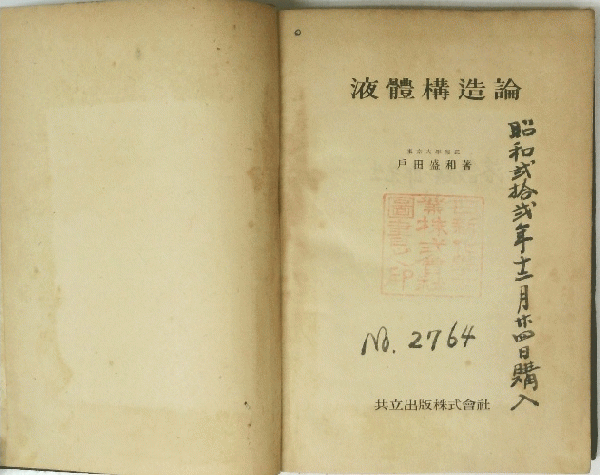 液體構造論
戸田盛和著
昭和弐拾弐年十二月廿四日購入
株式會社
圖書之印
No. 2764
共立出版株式會社